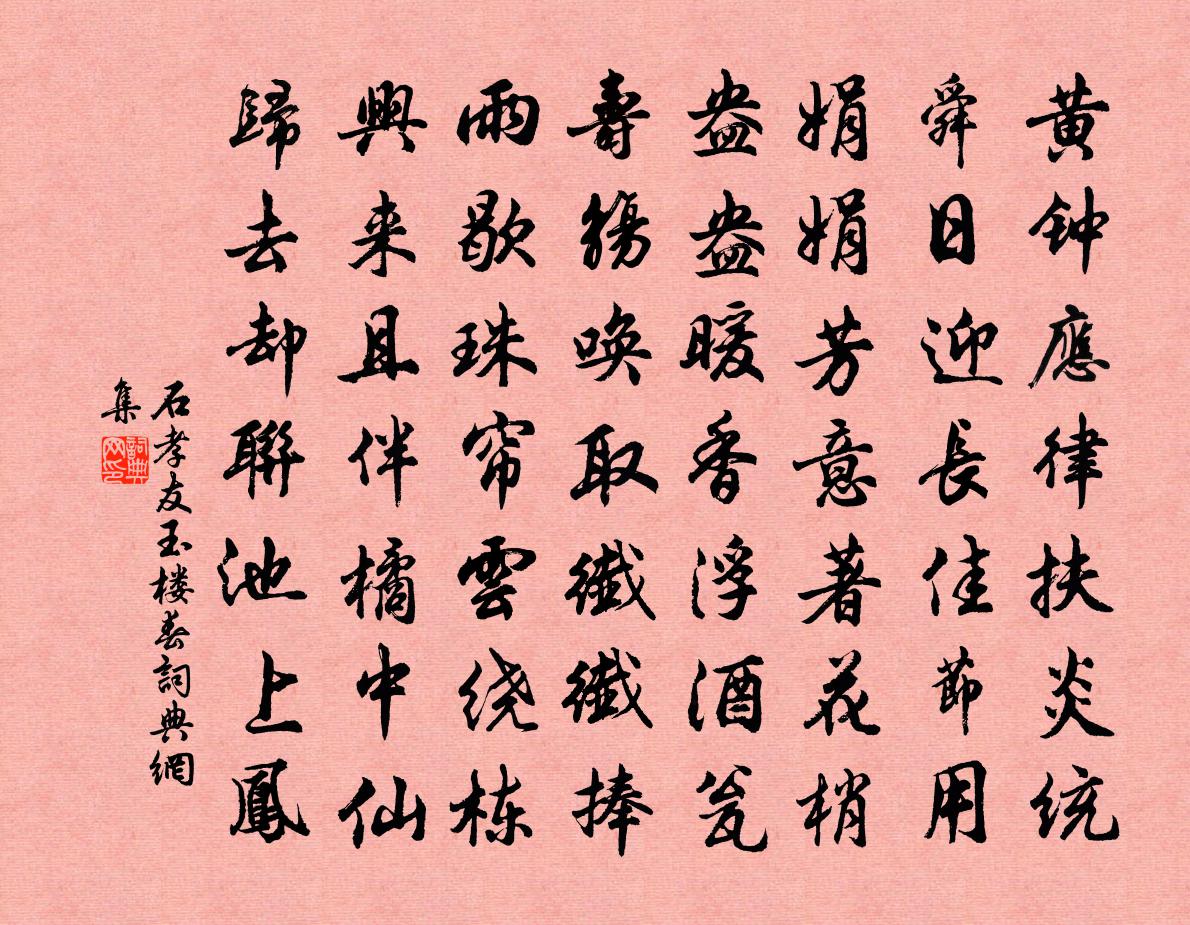 黄钟應律扶炎统
舜日迎長佳節用
娟娟芳意著花梢
盎盎暖香浮酒瓮
壽觴唤取纖纖捧
雨歇珠帘雲绕栋
興来且伴橘中仙
歸去却聯池上鳳
石孝友玉楼春詞典網
集
詞典网印